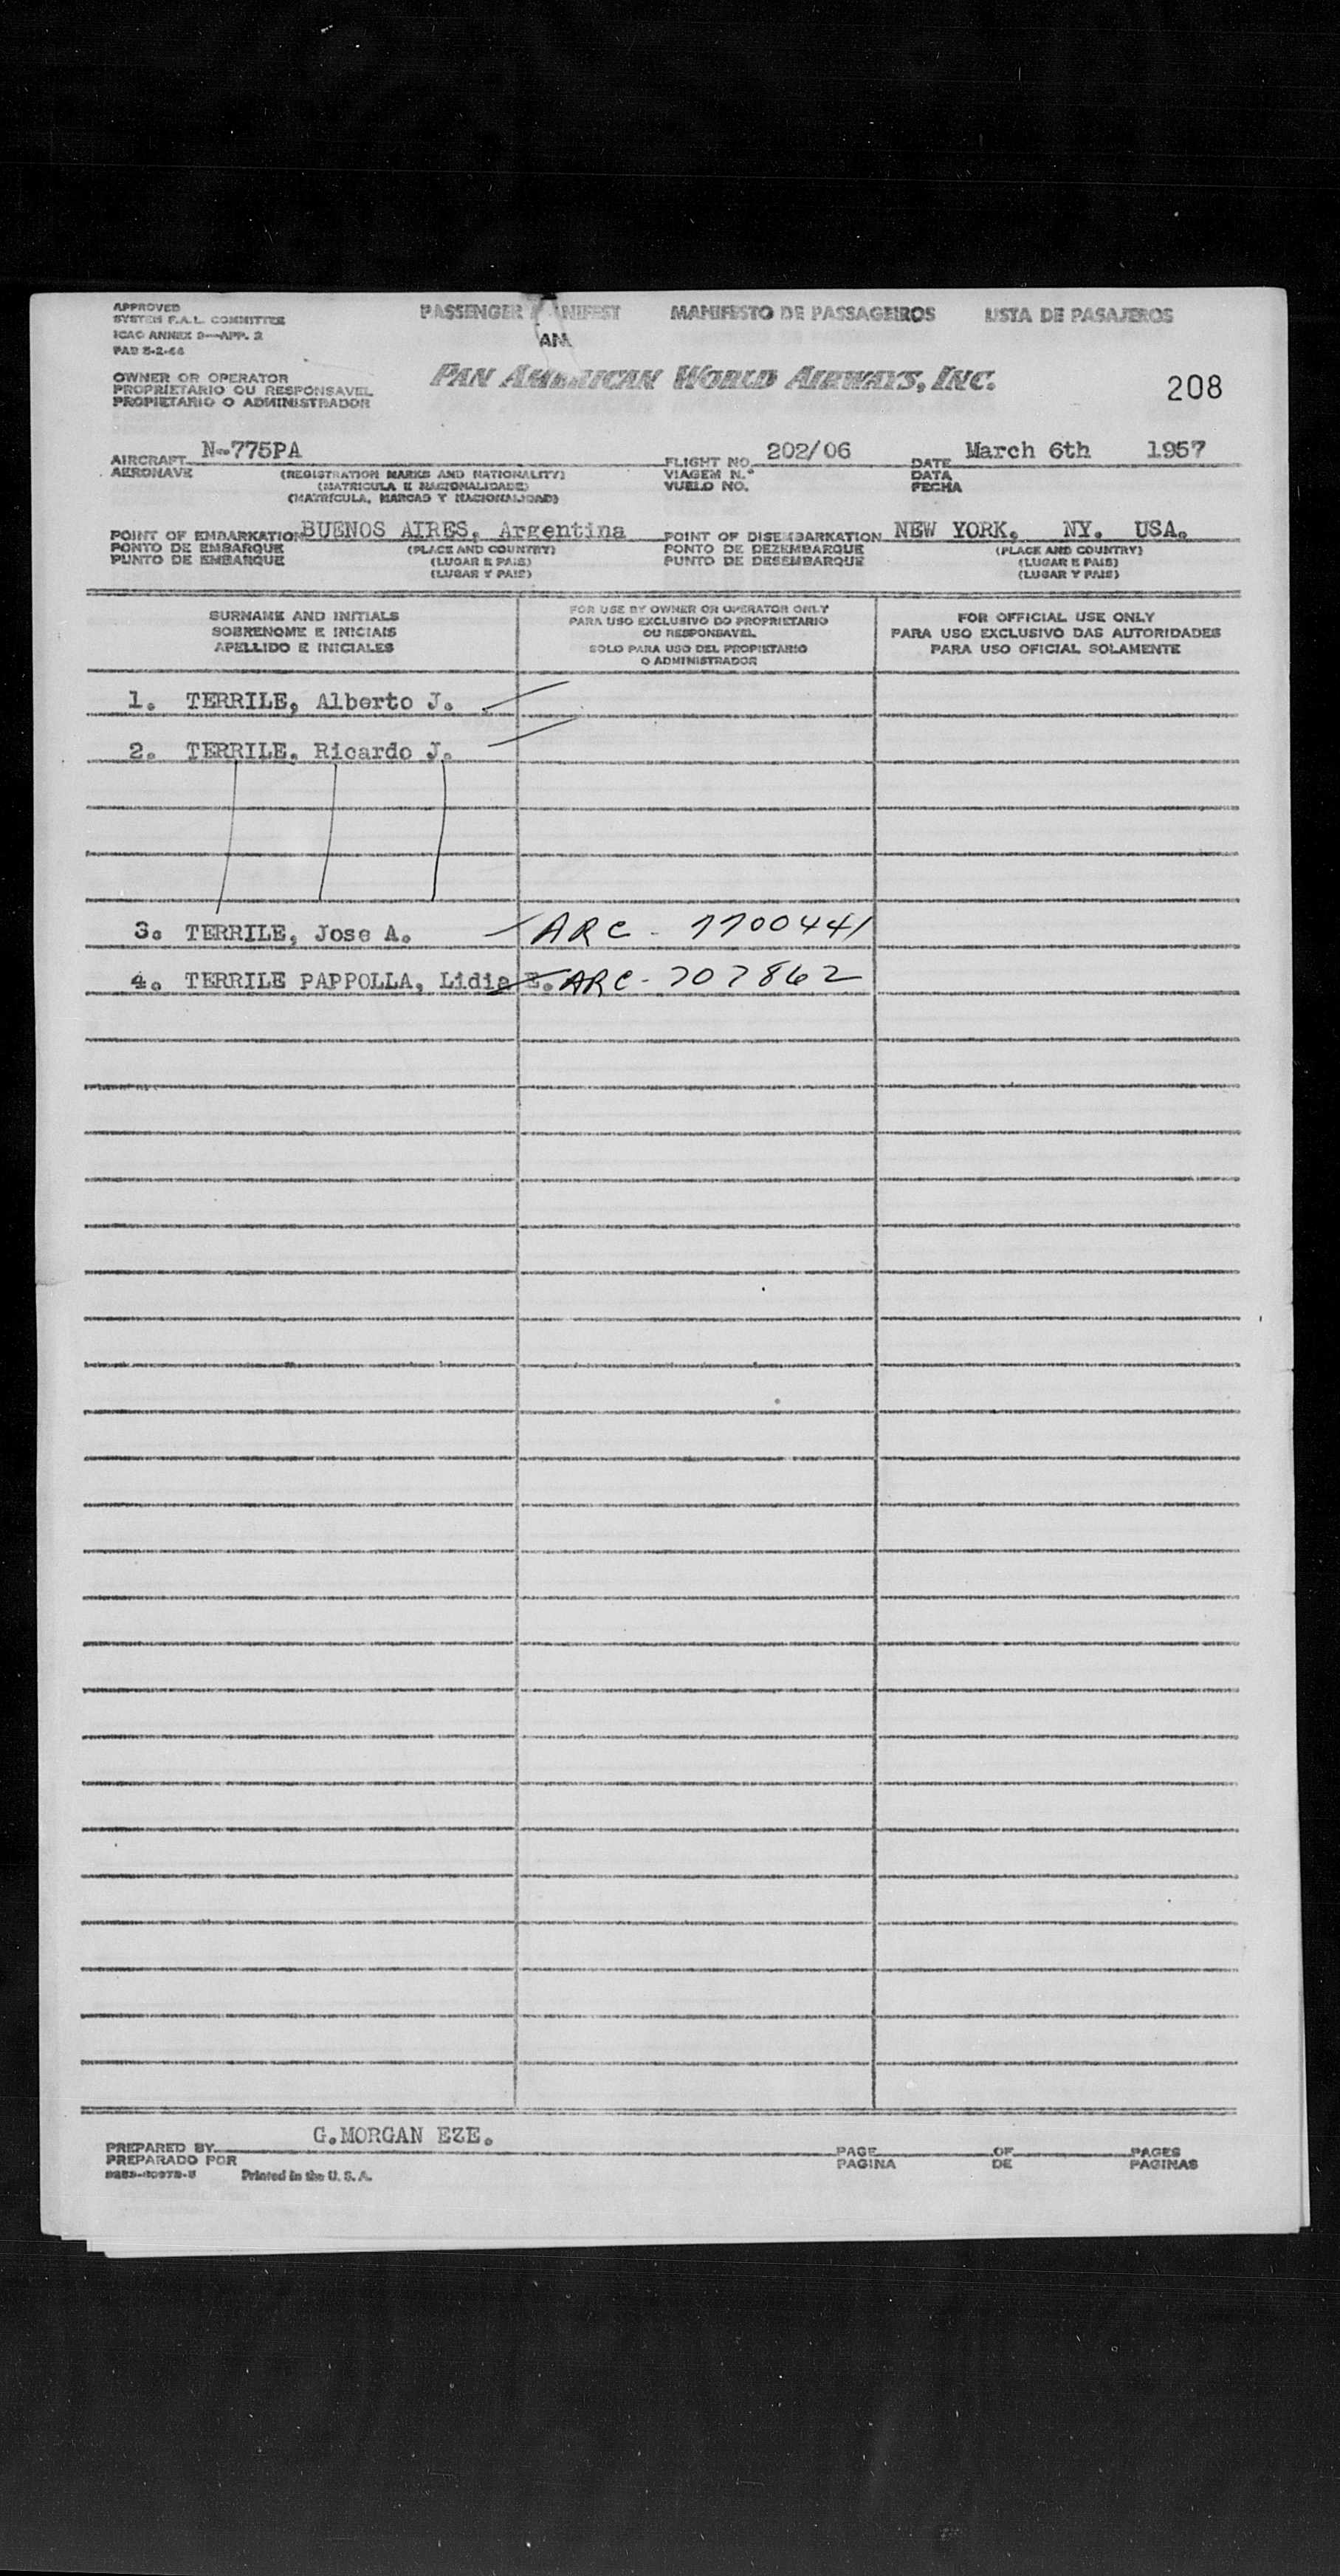 APPROVED
SYSTEM F.A.L. COMMITTEE
ICAO ANNEX 9—APP. 2
PAB 5-2-44
PASSENGER MANIFEST MANIFESTO DE PASSAGEIROS LISTA DE PASAJEROS
AM
OWNER OR OPERATOR
PROPRIETARIO OU RESPONSAVEL
PROPIETARIO O ADMINISTRADOR
PAN AMERICAN WORLD AIRWAYS, INC.
208
AIRCRAFT N-775PA FLIGHT NO. 202/06 DATE March 6th 1957
AERONAVE (REGISTRATION MARKS AND NATIONALITY) VIAGEM N.° DATA
(MATRICULA E NACIONALIDADE) VUELO NO. FECHA
(MATRÍCULA, MARCAS Y NACIONALIDAD)
POINT OF EMBARKATION BUENOS AIRES, Argentina POINT OF DISEMBARKATION NEW YORK, NY. USA.
PONTO DE EMBARQUE (PLACE AND COUNTRY) PONTO DE DEZEMBARQUE (PLACE AND COUNTRY)
PUNTO DE EMBARQUE (LUGAR E PAIS) PUNTO DE DESEMBARQUE (LUGAR E PAIS)
(LUGAR Y PAIS) (LUGAR Y PAIS)
SURNAME AND INITIALS
SOBRENOME E INICIAIS
APELLIDO E INICIALES
FOR USE BY OWNER OR OPERATOR ONLY
PARA USO EXCLUSIVO DO PROPRIETARIO
OU RESPONSAVEL
SOLO PARA USO DEL PROPIETARIO
O ADMINISTRADOR
FOR OFFICIAL USE ONLY
PARA USO EXCLUSIVO DAS AUTORIDADES
PARA USO OFICIAL SOLAMENTE
1. TERRILE, Alberto J.
2. TERRILE, Ricardo J.
3. TERRILE, Jose A. ARC - 7700441
4. TERRILE PAPPOLLA, Lidia E. ARC - 707862
G.MORGAN EZE.
PREPARED BY PAGE OF PAGES
PREPARADO POR PAGINA DE PAGINAS
Printed in the U. S. A.